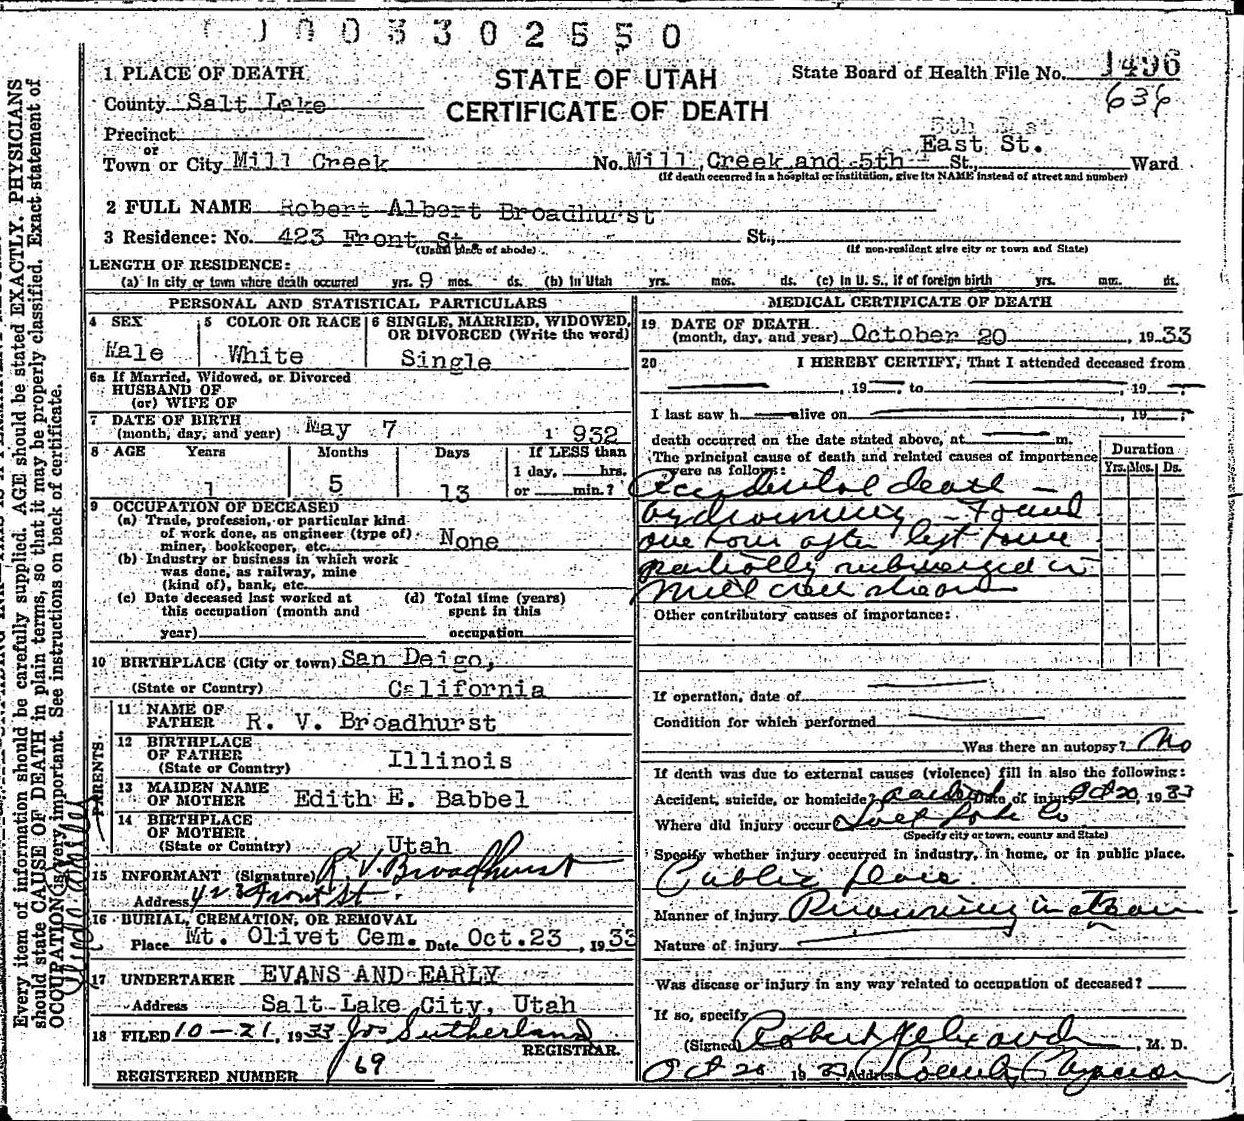 0003302550
1 PLACE OF DEATH
STATE OF UTAH
CERTIFICATE OF DEATH
State Board of Health File No. 1496
636
County Salt Lake
Precinct
or
Town or City Mill Creek
5th East
East St.
No. Mill Creek and 5th St., Ward
(If death occurred in a hospital or institution, give its NAME instead of street and number)
2 FULL NAME Robert Albert Broadhurst
3 Residence: No. 423 Front St. St.,
(Usual place of abode)
(If non-resident give city or town and State)
LENGTH OF RESIDENCE:
(a) In city or town where death occurred yrs. 9 mos. ds. (b) In Utah yrs. mos. ds. (c) In U. S., if of foreign birth yrs. mos. ds.
PERSONAL AND STATISTICAL PARTICULARS
4 SEX
Male
5 COLOR OR RACE
White
6 SINGLE, MARRIED, WIDOWED, OR DIVORCED (Write the word)
Single
6a If Married, Widowed, or Divorced
HUSBAND OF
(or) WIFE OF
7 DATE OF BIRTH
(month, day, and year) May 7 1932
8 AGE Years Months Days If LESS than
1 day, hrs.
1 5 13 or min.?
9 OCCUPATION OF DECEASED
(a) Trade, profession, or particular kind
of work done, as engineer (type of)
miner, bookkeeper, etc. None
(b) Industry or business in which work
was done, as railway, mine
(kind of), bank, etc.
(c) Date deceased last worked at
this occupation (month and
year)
(d) Total time (years)
spent in this
occupation
10 BIRTHPLACE (City or town) San Deigo,
(State or Country) California
PARENTS
11 NAME OF
FATHER R. V. Broadhurst
12 BIRTHPLACE
OF FATHER
(State or Country) Illinois
13 MAIDEN NAME
OF MOTHER Edith E. Babbel
14 BIRTHPLACE
OF MOTHER
(State or Country) Utah
15 INFORMANT (Signature) R. V. Broadhurst
Address 423 Front St.
16 BURIAL, CREMATION, OR REMOVAL
Place Mt. Olivet Cem. Date Oct.23, 1933
17 UNDERTAKER EVANS AND EARLY
Address Salt Lake City, Utah
18 FILED 10-21, 1933 Jos Sutherland
REGISTRAR.
REGISTERED NUMBER 69
MEDICAL CERTIFICATE OF DEATH
19 DATE OF DEATH
(month, day, and year) October 20, 1933
20 I HEREBY CERTIFY, That I attended deceased from
, 19 to , 19
I last saw h alive on , 19
death occurred on the date stated above, at m.
The principal cause of death and related causes of importance
were as follows:
Duration
Yrs. Mos. Ds.
Accidental death -
by drowning - Found
one hour after left home
partially submerged in
Mill creek stream
Other contributory causes of importance:
If operation, date of
Condition for which performed
Was there an autopsy? No
If death was due to external causes (violence) fill in also the following:
Accident, suicide, or homicide? Accident Date of injury Oct 20, 1933
Where did injury occur Salt Lake Co
(Specify city or town, county and State)
Specify whether injury occurred in industry, in home, or in public place.
Public place
Manner of injury Drowning in stream
Nature of injury
Was disease or injury in any way related to occupation of deceased?
If so, specify
(Signed) Robert , M. D.
Oct 20 1933 Address County Physician
Every item of information should be carefully supplied. AGE should be stated EXACTLY. PHYSICIANS
should state CAUSE OF DEATH in plain terms, so that it may be properly classified. Exact statement of
OCCUPATION is very important. See instructions on back of certificate.